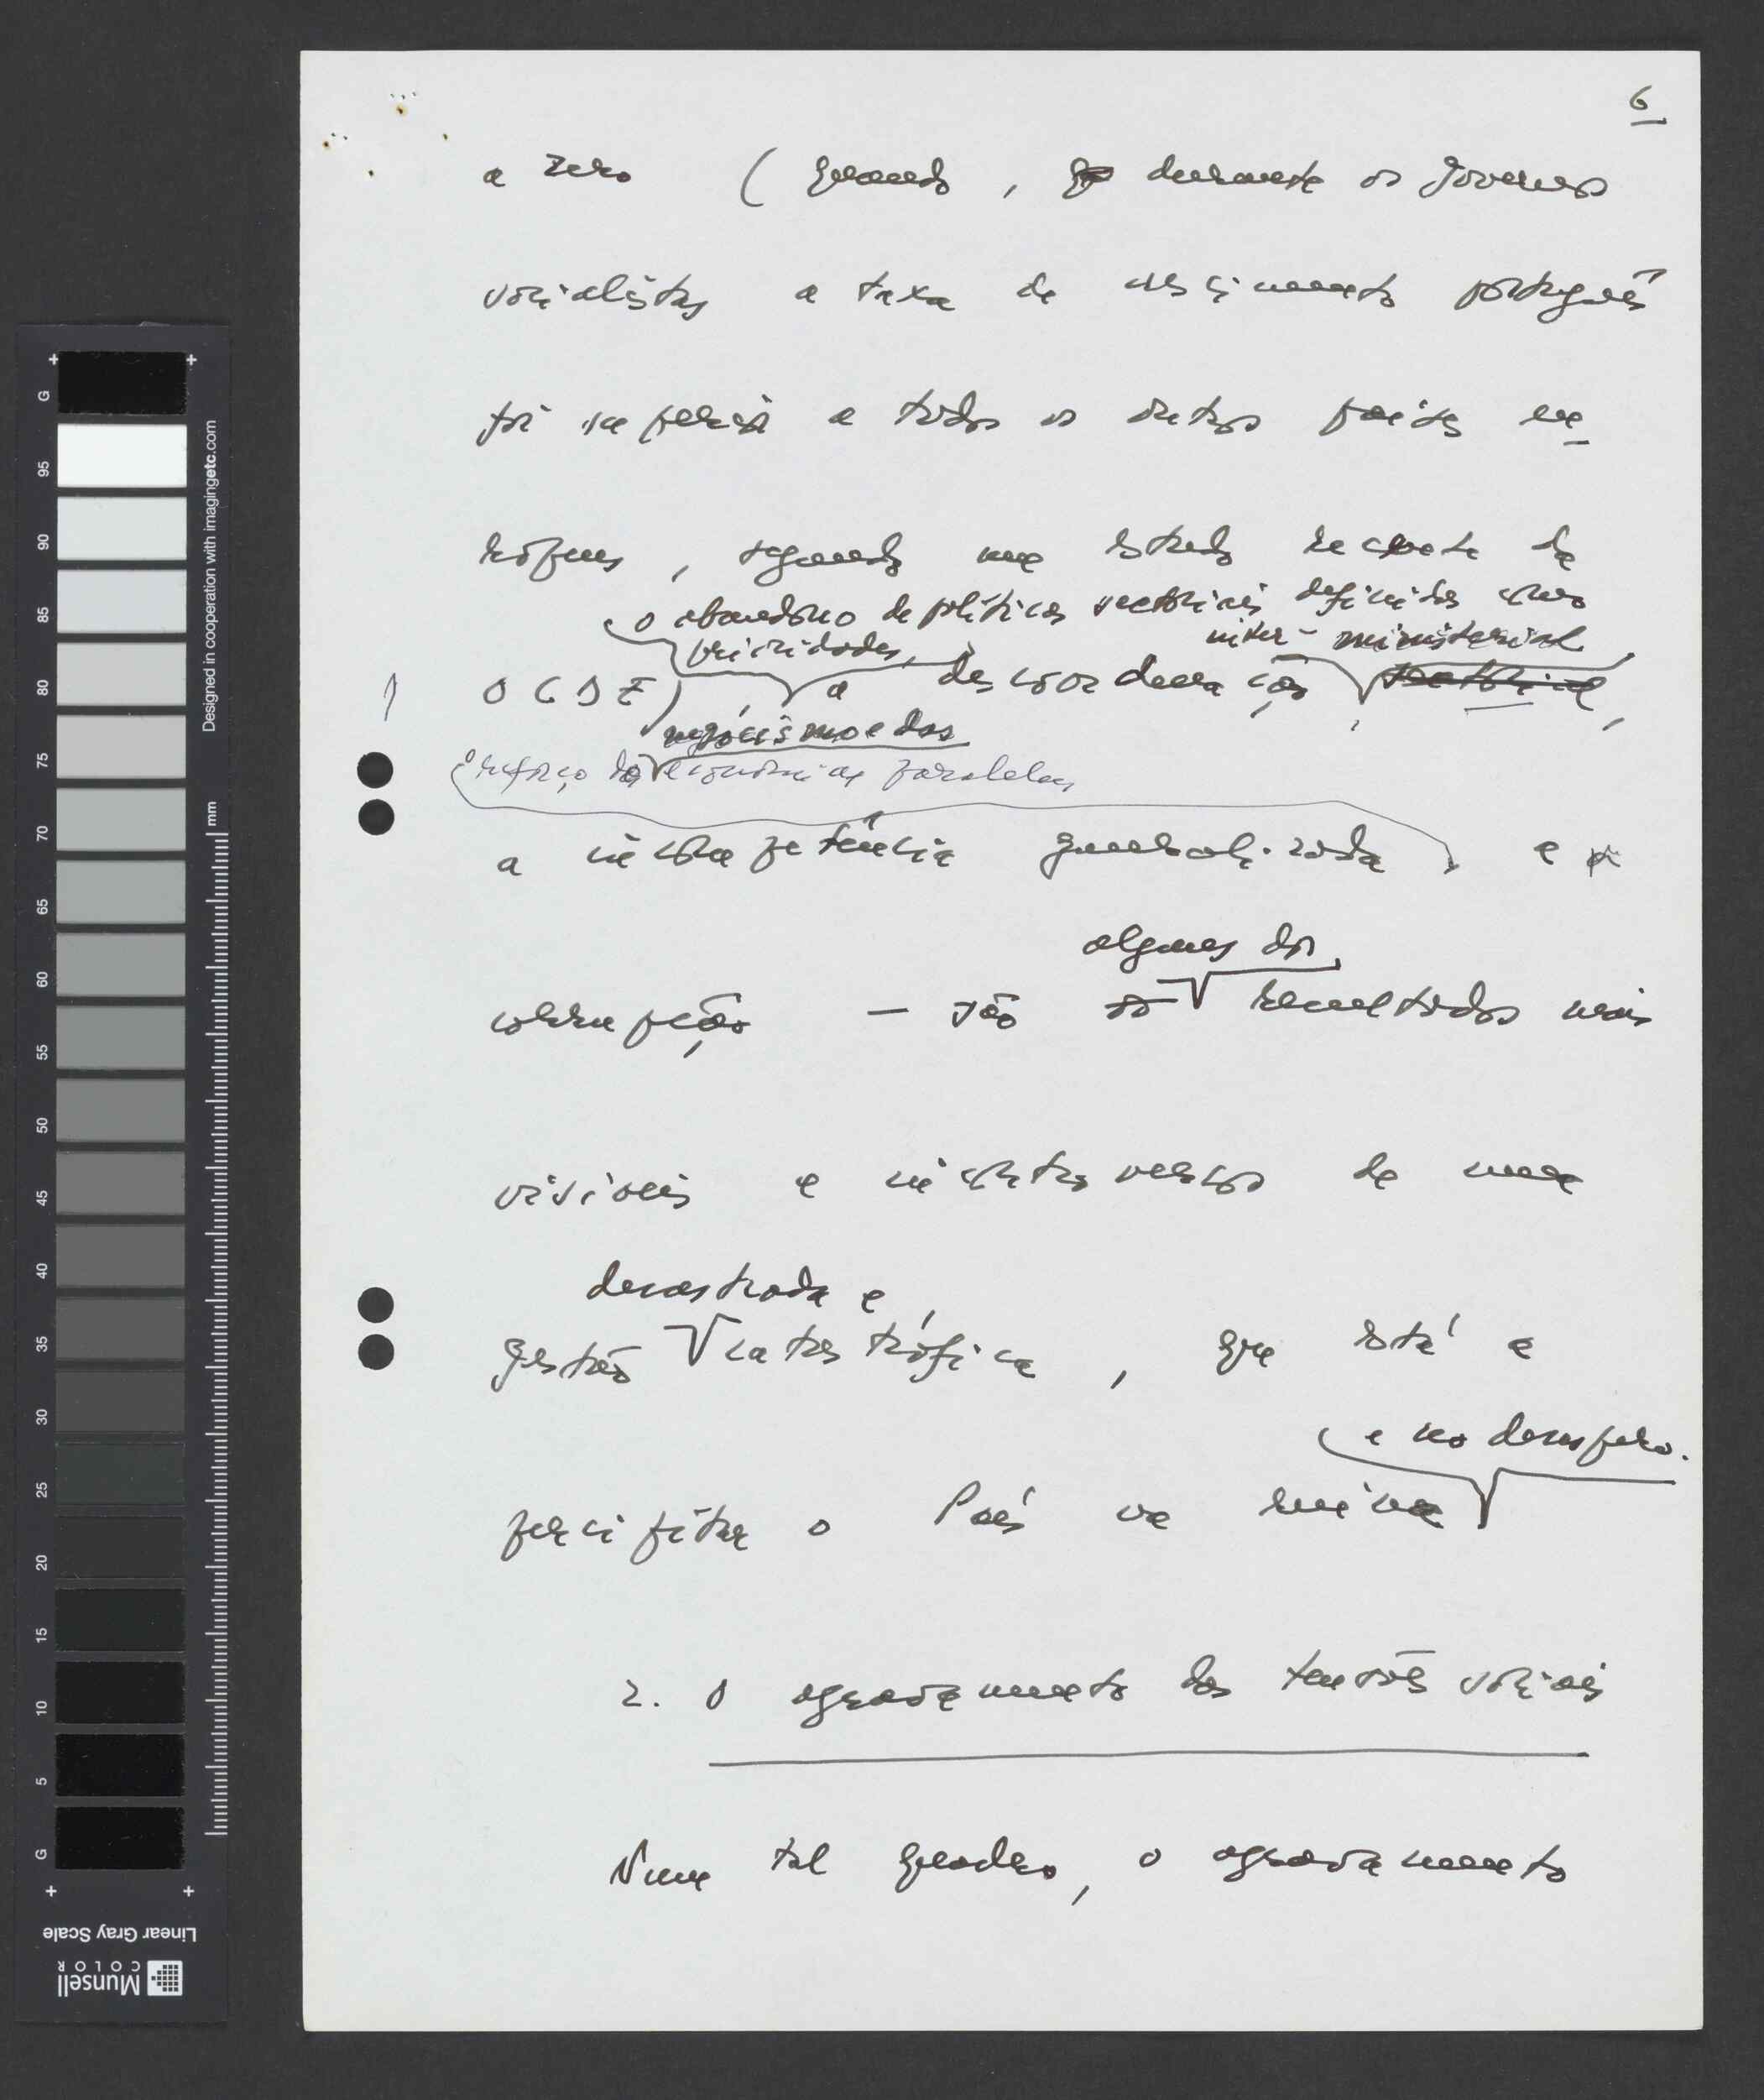 6
a zero (quando, durante os governos
socialistas a taxa de crescimento português
foi superior a todos os outros países eu-
ropeus, segundo um estudo recente da
o abandono de políticas sectoriais definidas como
prioridades,
inter-ministerial
OCDE), a descoordenação sectorial,
negocismo e das
o reforço das economias paralelas
a incompetência generalizada, e a
alguns dos
corrupção — são os resultados mais
visíveis e incontroversos de uma
desastrada e
gestão catastrófica, que está a
e no desespero.
precipitar o País na ruína
2. O agravamento das tensões sociais
Num tal quadro, o agravamento
G 95 90 85 80 75 70 65 60 55 50 45 40 35 30 25 20 15 10 5 G
Designed in cooperation with imagingetc.com
mm
Linear Gray Scale
Munsell
COLOR